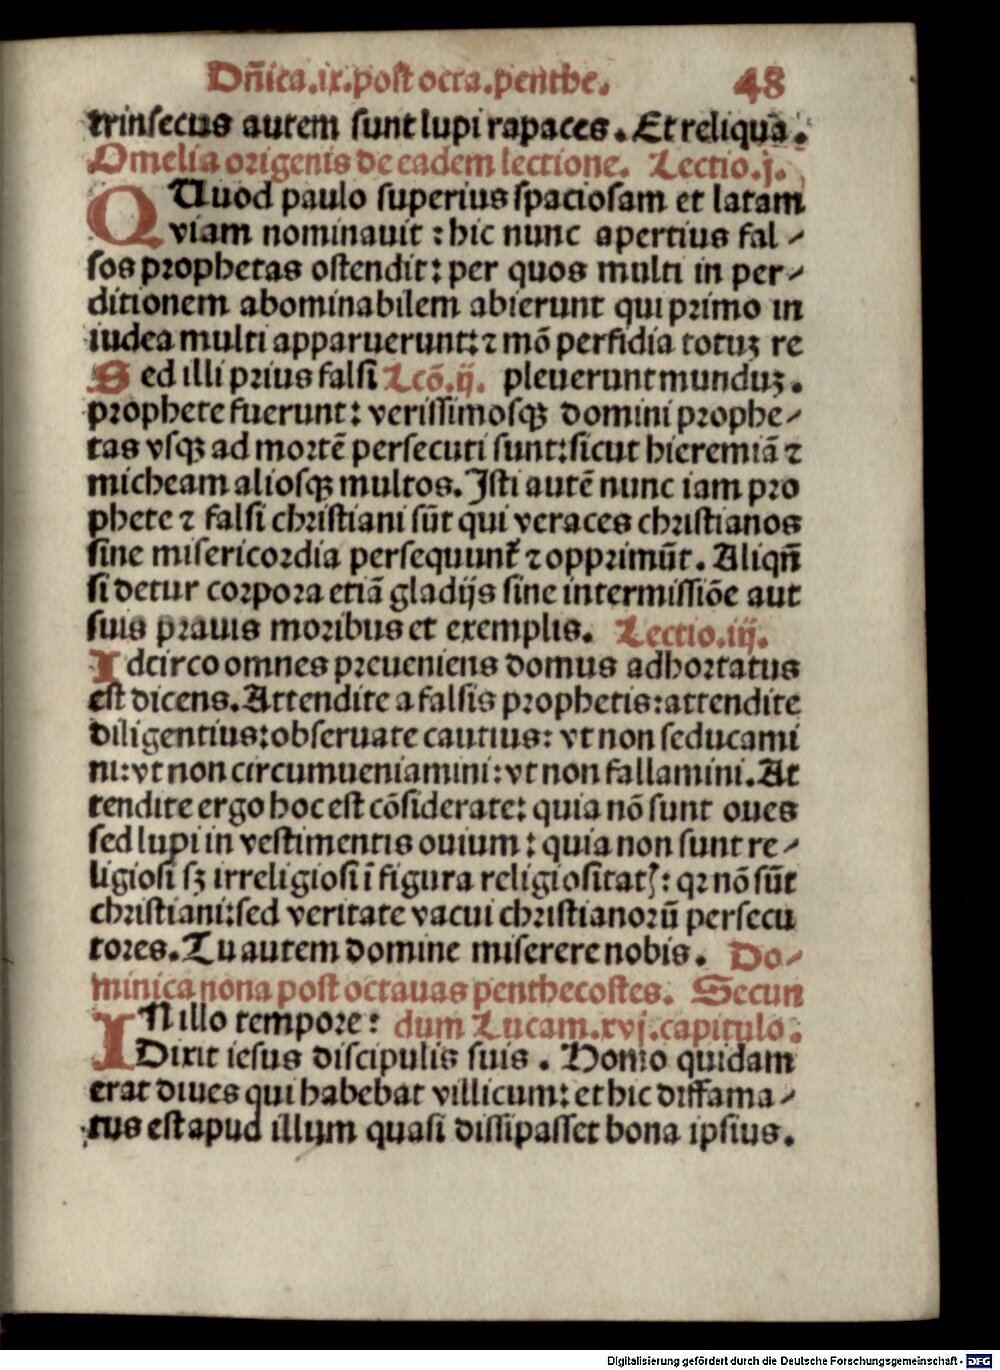 Dn̄ica.ix.post octa.penthe. 48
trinsecus autem sunt lupi rapaces. Et reliqua.
Omelia origenis de eadem lectione. Lectio.j.
QUod paulo superius spaciosam et latam
viam nominauit : hic nunc apertius fal-
sos prophetas ostendit: per quos multi in per-
ditionem abominabilem abierunt qui primo in
iudea multi apparuerunt: ⁊ mō perfidia totuʒ re
Sed illi prius falsi Lcō.ij. pleuerunt munduʒ.
prophete fuerunt: verissimosqꝫ domini prophe-
tas vsqꝫ ad mortē persecuti sunt: sicut hieremiā ⁊
micheam aliosqꝫ multos. Isti autē nunc iam pro
phete ⁊ falsi christiani sūt qui veraces christianos
sine misericordia persequunt᷑ ⁊ opprimūt. Aliqn̄
si detur corpora etiā gladijs sine intermissiōe aut
suis prauis moribus et exemplis. Lectio.iij.
Idcirco omnes preueniens domus adhortatus
est dicens. Attendite a falsis prophetis: attendite
diligentius: obseruate cautius: vt non seducami
ni: vt non circumueniamini: vt non fallamini. At
tendite ergo hoc est cōsiderate: quia nō sunt oues
sed lupi in vestimentis ouium : quia non sunt re-
ligiosi sʒ irreligiosi ī figura religiositatꝭ: qꝛ nō sūt
christiani: sed veritate vacui christianorū persecu
tores. Tu autem domine miserere nobis. Do-
minica nona post octauas penthecostes. Secun
IN illo tempore: dum Lucam.xvj.capitulo.
Dixit iesus discipulis suis. Homo quidam
erat diues qui habebat villicum: et hic diffama-
tus est apud illum quasi dissipasset bona ipsius.
Digitalisierung gefördert durch die Deutsche Forschungsgemeinschaft - DFG